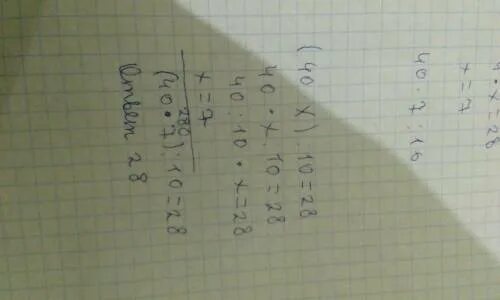 4 · x = 28
x = 7
40 · 7 : 10
(40 x) : 10 = 28
40 · x : 10 = 28
40 : 10 · x = 28
x = 7
280
(40 · 7) : 10 = 28
Ответ 28